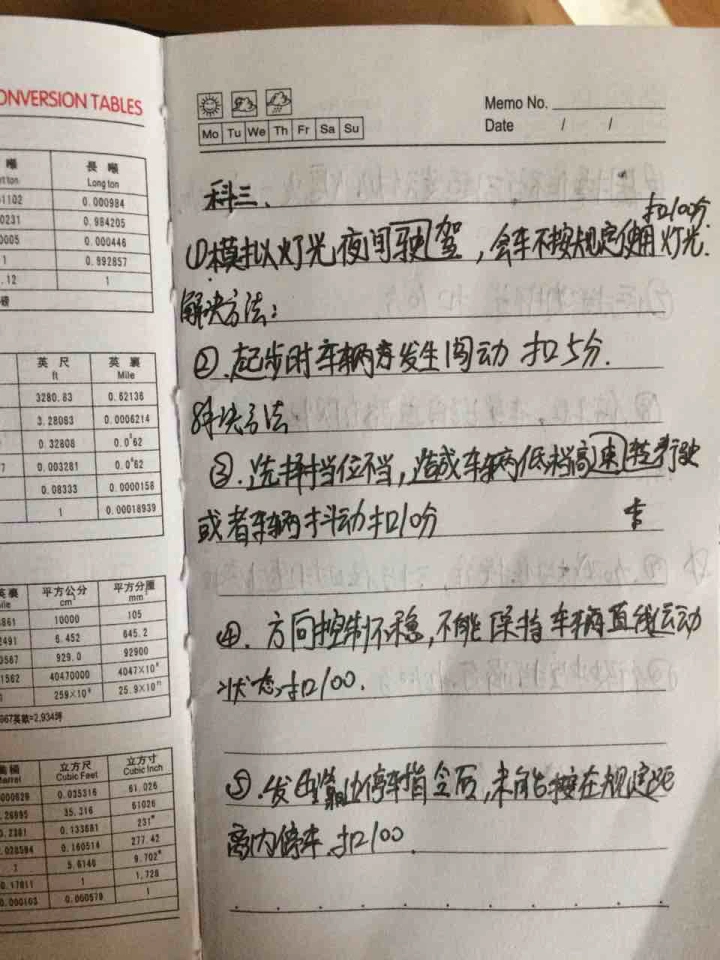 ONVERSION TABLES
噸 長噸
rt ton Long ton
1102 0.000984
0231 0.984205
0005 0.000446
1 0.892857
.12 1
磅
英尺 英裏
ft Mile
3280.83 0.62136
3.28083 0.0006214
0.32808 0.0⁶62
0.003281 0.0⁶62
0.08333 0.0000158
1 0.00018939
英裏 平方公分 平方分厘
ile cm² mm²
3861 10000 105
2491 6.452 645.2
0567 929.0 92900
1562 40470000 4047×10⁶
259×10⁸ 25.9×10¹¹
967英畝=2,934坪
立方尺 立方寸
Barrel Cubic Feet Cubic Inch
000628 0.035316 61.026
.26995 35.316 61026
0.2381 0.133681 231*
.028594 0.160514 277.42
1 5.6146 9.702*
0.17811 1 1,728
0.000103 0.000579 1
Mo Tu We Th Fr Sa Su
Memo No.
Date / /
科三、
扣100分
①模拟灯光夜间驶驾，会车不按规定使用灯光.
解决方法：
②.起步时车辆序发生闯动 扣5分.
解决方法
③.选择挡位不当，造成车辆低档高速转行驶
或者车辆抖动扣10分
④.方向控制不稳，不能保持车辆直线运动
状态扣100.
⑤.发出靠边停车指令后，未能接在规定距
离内停车.扣100